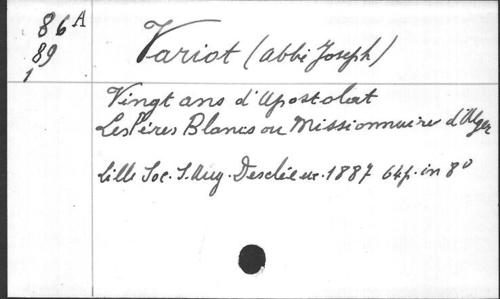 86 A
89
1
Variot (abbé Joseph)
Vingt ans d'Apostolat
Les Pères Blancs ou Missionnaire d'Alger
Lille Soc. S. Aug. Desclée 1887 64p. in 8°